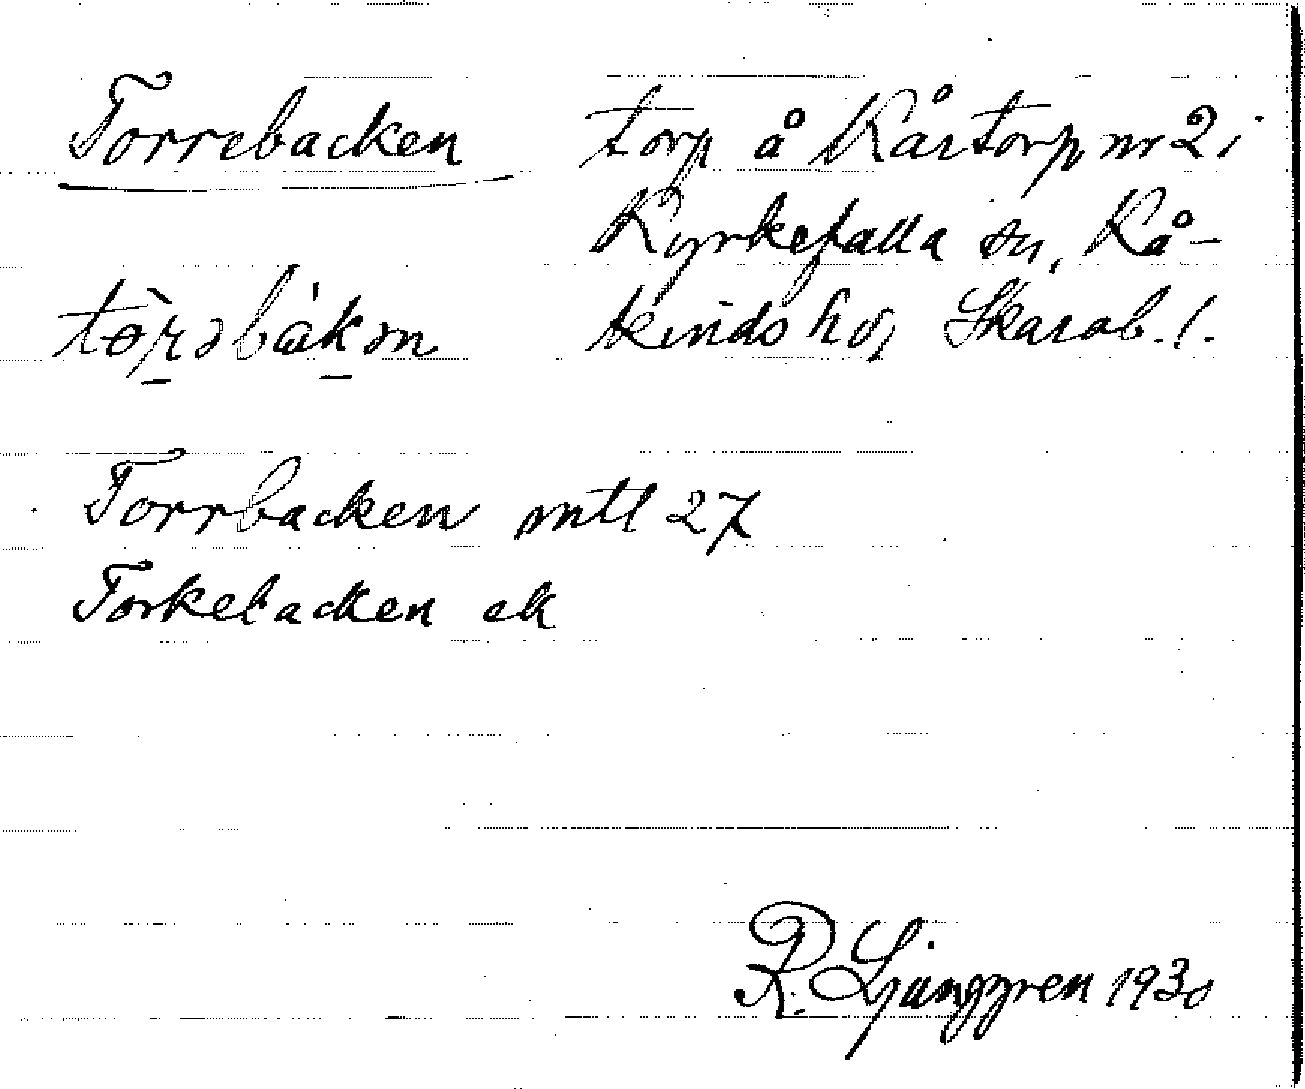 Torrebacken torp å Kårtorp nr 2 i
Kyrkefalla sn, Kå-
tòrəbàkən kinds hd, Skarab. l.
Torrbacken mtl 27
Torkebacken ek
R. Ljunggren 1930